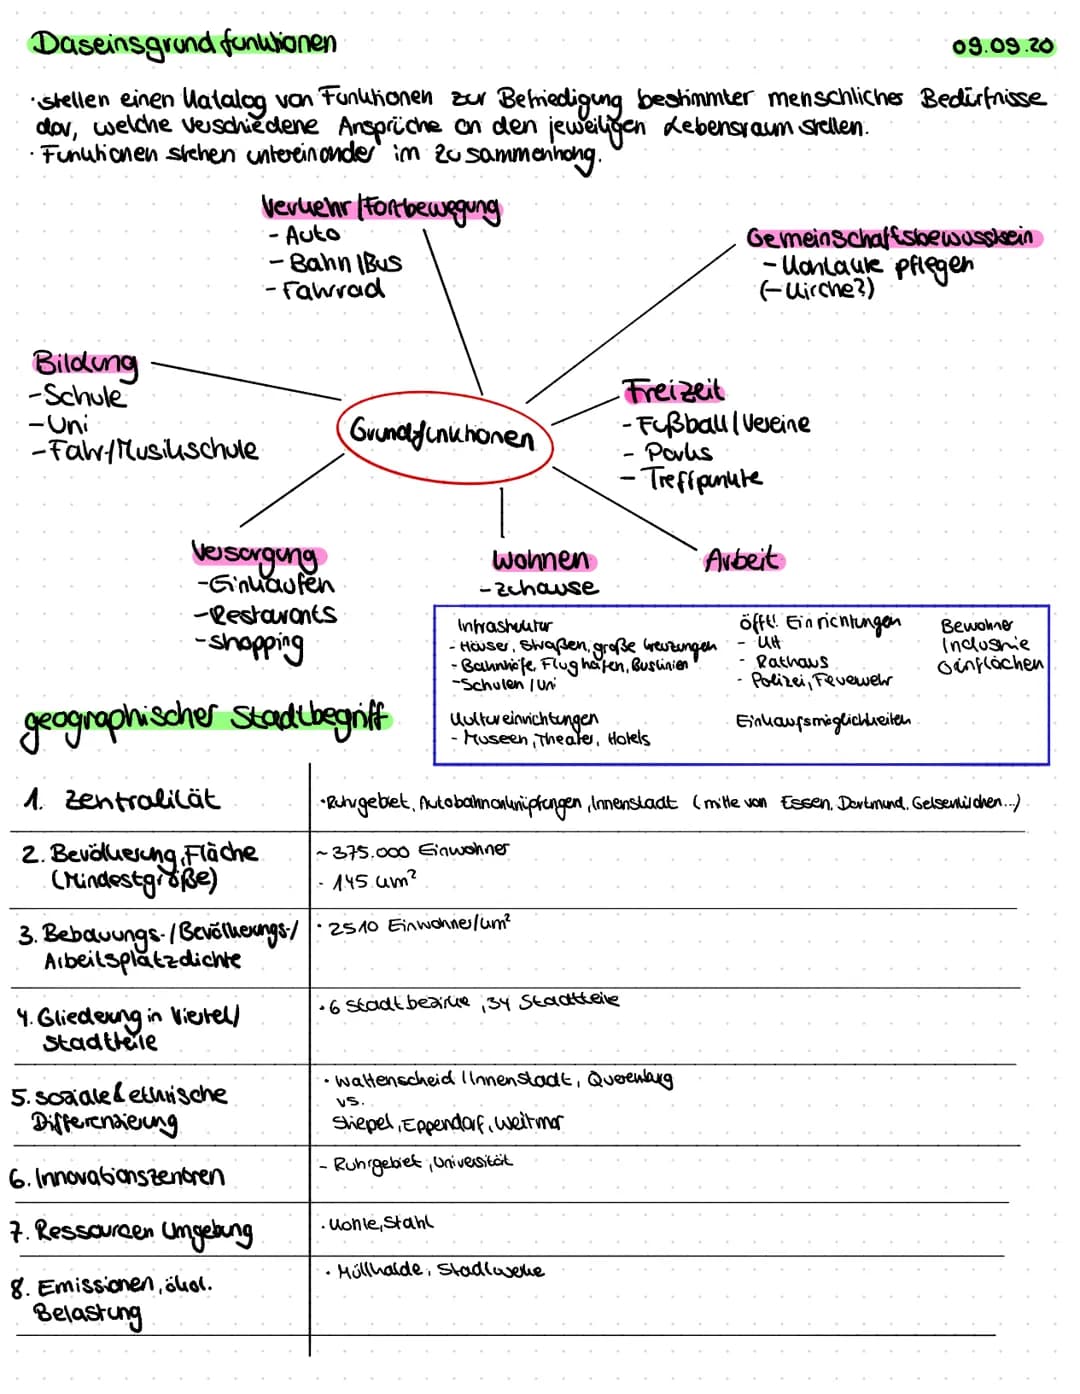 Daseinsgrundfunktionen
09.09.20
· stellen einen Katalog von Funktionen zur Befriedigung bestimmter menschlicher Bedürfnisse
dar, welche verschiedene Ansprüche an den jeweiligen Lebensraum stellen.
· Funktionen stehen untereinander im Zusammenhang.
Verkehr/Fortbewegung
- Auto
- Bahn/Bus
- Fahrrad
Gemeinschaftsbewusstsein
- Kontakte pflegen
(- Kirche?)
Bildung
- Schule
- Uni
- Fahr-/Musikschule
Grundfunktionen
Freizeit
- Fußball/Vereine
- Parks
- Treffpunkte
Versorgung
- Einkaufen
- Restaurants
- shopping
Wohnen
- zuhause
Arbeit
Infrastruktur
- Häuser, Straßen, große Kreuzungen
- Bahnhöfe, Flughäfen, Buslinien
- Schulen/Uni
Kultureinrichtungen
- Museen, Theater, Hotels
öfftl. Einrichtungen
- Kita
- Rathaus
- Polizei, Feuerwehr
Einkaufsmöglichkeiten
Bewohner
Industrie
Grünflächen
geographischer Stadtbegriff
1. Zentralität
· Ruhrgebiet, Autobahnanknüpfungen, Innenstadt (mitte von Essen, Dortmund, Gelsenkirchen...)
2. Bevölkerung, Fläche
(Mindestgröße)
~ 375.000 Einwohner
· 145 km²
3. Bebauungs-/Bevölkerungs-/
Arbeitsplatzdichte
· 2510 Einwohner/km²
4. Gliederung in Viertel/
Stadtteile
· 6 Stadtbezirke, 34 Stadtteile
5. soziale & ethnische
Differenzierung
· Wattenscheid, Innenstadt, Querenburg
vs.
Stiepel, Eppendorf, Weitmar
6. Innovationszentren
- Ruhrgebiet, Universität
7. Ressourcen Umgebung
· Kohle, Stahl
8. Emissionen, ökol.
Belastung
· Müllhalde, Stadtwerke